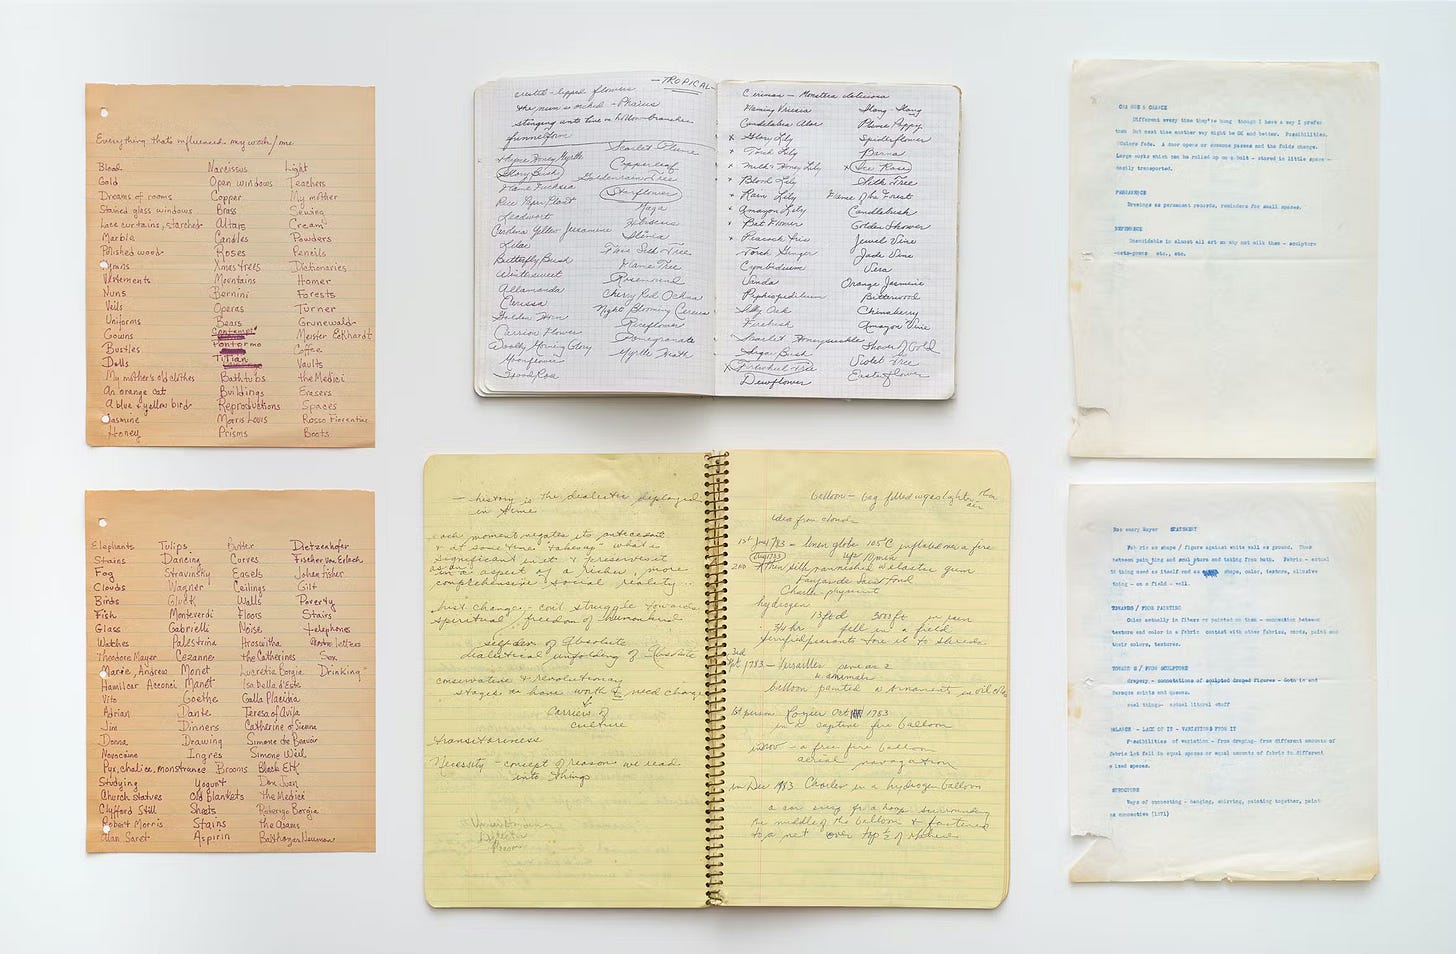 Everything that's influenced my work/me
Blood Narcissus Light
Gold Open windows Teachers
Dreams of rooms Copper My mother
Stained glass windows Brass Sewing
Lace curtains, starched Altars Cream
Marble Candles Powders
Polished wood Roses Pencils
Hymns Xmas trees Dictionaries
Vestements Mountains Homer
Nuns Bernini Forests
Veils Operas Turner
Uniforms Bears Grunewald
Gowns Meister Eckhardt
Bustles Pontormo Coffee
Dolls Titian Vaults
My mother's old clothes Bathtubs the Medici
An orange cat Buildings Erasers
A blue & yellow bird Reproductions Spaces
Jasmine Morris Louis Rosso Fiorentino
Honey Prisms Boots
Elephants Tulips Butter Dietzenhofer
Stains Dancing Curves Fischer von Erlach
Fog Stravinsky Easels Johan Fisher
Clouds Wagner Ceilings Gilt
Birds Gluck Walls Poverty
Fish Monteverdi Floors Stairs
Glass Gabrielli Noise Telephones
Watches Palestrina Hroswitha
Theodore Mayer Cezanne the Catherines Sex
Marie, Andrew Monet Lucretia Borgia Drinking
Hamilcar Acconci Manet Isabella d'Este
Vito Goethe Galla Placidia
Adrian Dante Teresa of Avila
Jim Dinners Catherine of Sienna
Donna Drawing Simone de Beauvoir
Novocaine Ingres Simone Weil
Pyx, chalice, monstrance Brooms Black Elk
Studying Yogurt Don Juan
Church statues Old Blankets the Medici
Clyfford Still Sheets Roderigo Borgia
Robert Morris Stains the Asams
Alan Saret Aspirin Balthazar Neuman
— TROPICAL —
crested-lipped flowers
the nun's orchid - Phaius
stinging ants live in hollow branches
funnelform
Scarlet Plume
Copperleaf
Glory Bush Goldenrain Tree
Flame Fuchsia Starflower
Rice Paper Plant
Leadwort Hibiscus
Carolina Yellow Jessamine
Lilac
Butterfly Bush Flame Tree
Wintersweet Rosewood
Allamanda Cherry Red Ochna
Carissa Night Blooming Cereus
Golden Horn Riceflower
Carrion Flower Pomegranate
Woolly Morning Glory Myrtle Heath
Moonflower
Wood Rose
Ceriman - Monstera deliciosa
Flaming Vriesia Ylang-Ylang
Candelabra Aloe Plume Poppy
x Glory Lily Spiderflower
x Torch Lily
x Milk & Honey Lily x Ice Rose
x Blood Lily Silk Tree
x Rain Lily Flame of the Forest
x Amazon Lily Candlebush
x Bat Flower Golden Shower
x Peacock Iris Jewel Vine
Torch Ginger Jade Vine
Cymbidium Vera
Vanda Orange Jasmine
Paphiopedilum Bitterwood
Silky Oak Chinaberry
Firebush Amazon Vine
Scarlet Honeysuckle Shower of Gold
Argan Bush Violet Tree
x Pinwheel Tree Easterflower
Dewflower
— history is the dialectic deployed
in time
each moment negates its antecedent
significant in it & preserves it
as an aspect of a richer, more
comprehensive social reality...
spiritual freedom of humankind
self-dev of Absolute
dialectical unfolding of Absolute
conservative & revolutionary
stages have worth & need change
Carriers of
culture
transitoriness
Necessity - concept of reason we read
into things
balloon - bag filled w gas lighter than
air
idea from clouds
1st June 1783 - linen globe 105' C inflated over a fire
Aug 1783 up 10 min
2nd
Charles physicist
hydrogen
3/4 hr fell in a field
terrified peasants tore it to shreds
3rd
Sept 1783 - Versailles
w animals
balloon painted w ornaments in oil colors
1st person Rozier Oct 1783
in a captive fire balloon
in Nov - a free fire balloon
aerial navagation
in Dec 1783 Charles in a hydrogen balloon
a car swung from a hoop surrounding
the middle of the balloon & fastened
to a net over top ½ of sphere
CHANGE & CHANCE
Different every time they're hung though I have a way I prefer
them But next time another way might be OK and better. Possibilities.
Colors fade. A door opens or someone passes and the folds change.
Large works which can be rolled up on a bolt - stored in little space -
easily transported.
PERMANENCE
Drawings as permanent records, reminders for small spaces.
REFERENCE
Unavoidable in almost all art so why not milk them - sculpture
etc., etc.
Rosemary Mayer STATEMENT
Fabric as shape / figure against white wall as ground. Thus
between painting and sculpture and taking from both. Fabric - actual
thing - on a field - wall.
TOWARDS / FROM PAINTING
Color actually in fibers or painted on them - connection between
texture and color in a fabric contrast with other fabrics, cords, paint and
their colors, textures.
TOWARDS / FROM SCULPTURE
drapery - connotations of sculpted draped figures - Gothic and
Baroque saints and queens.
real things - actual literal stuff
BALANCE - LACK OF IT - VARIATIONS FROM IT
Possibilities of variation - from draping- from different amounts of
fabric let fall in equal spaces or equal amounts of fabric in different
sized spaces.
STRUCTURE
Ways of connecting - hanging, shirring, painting together, paint
as connective (1971)